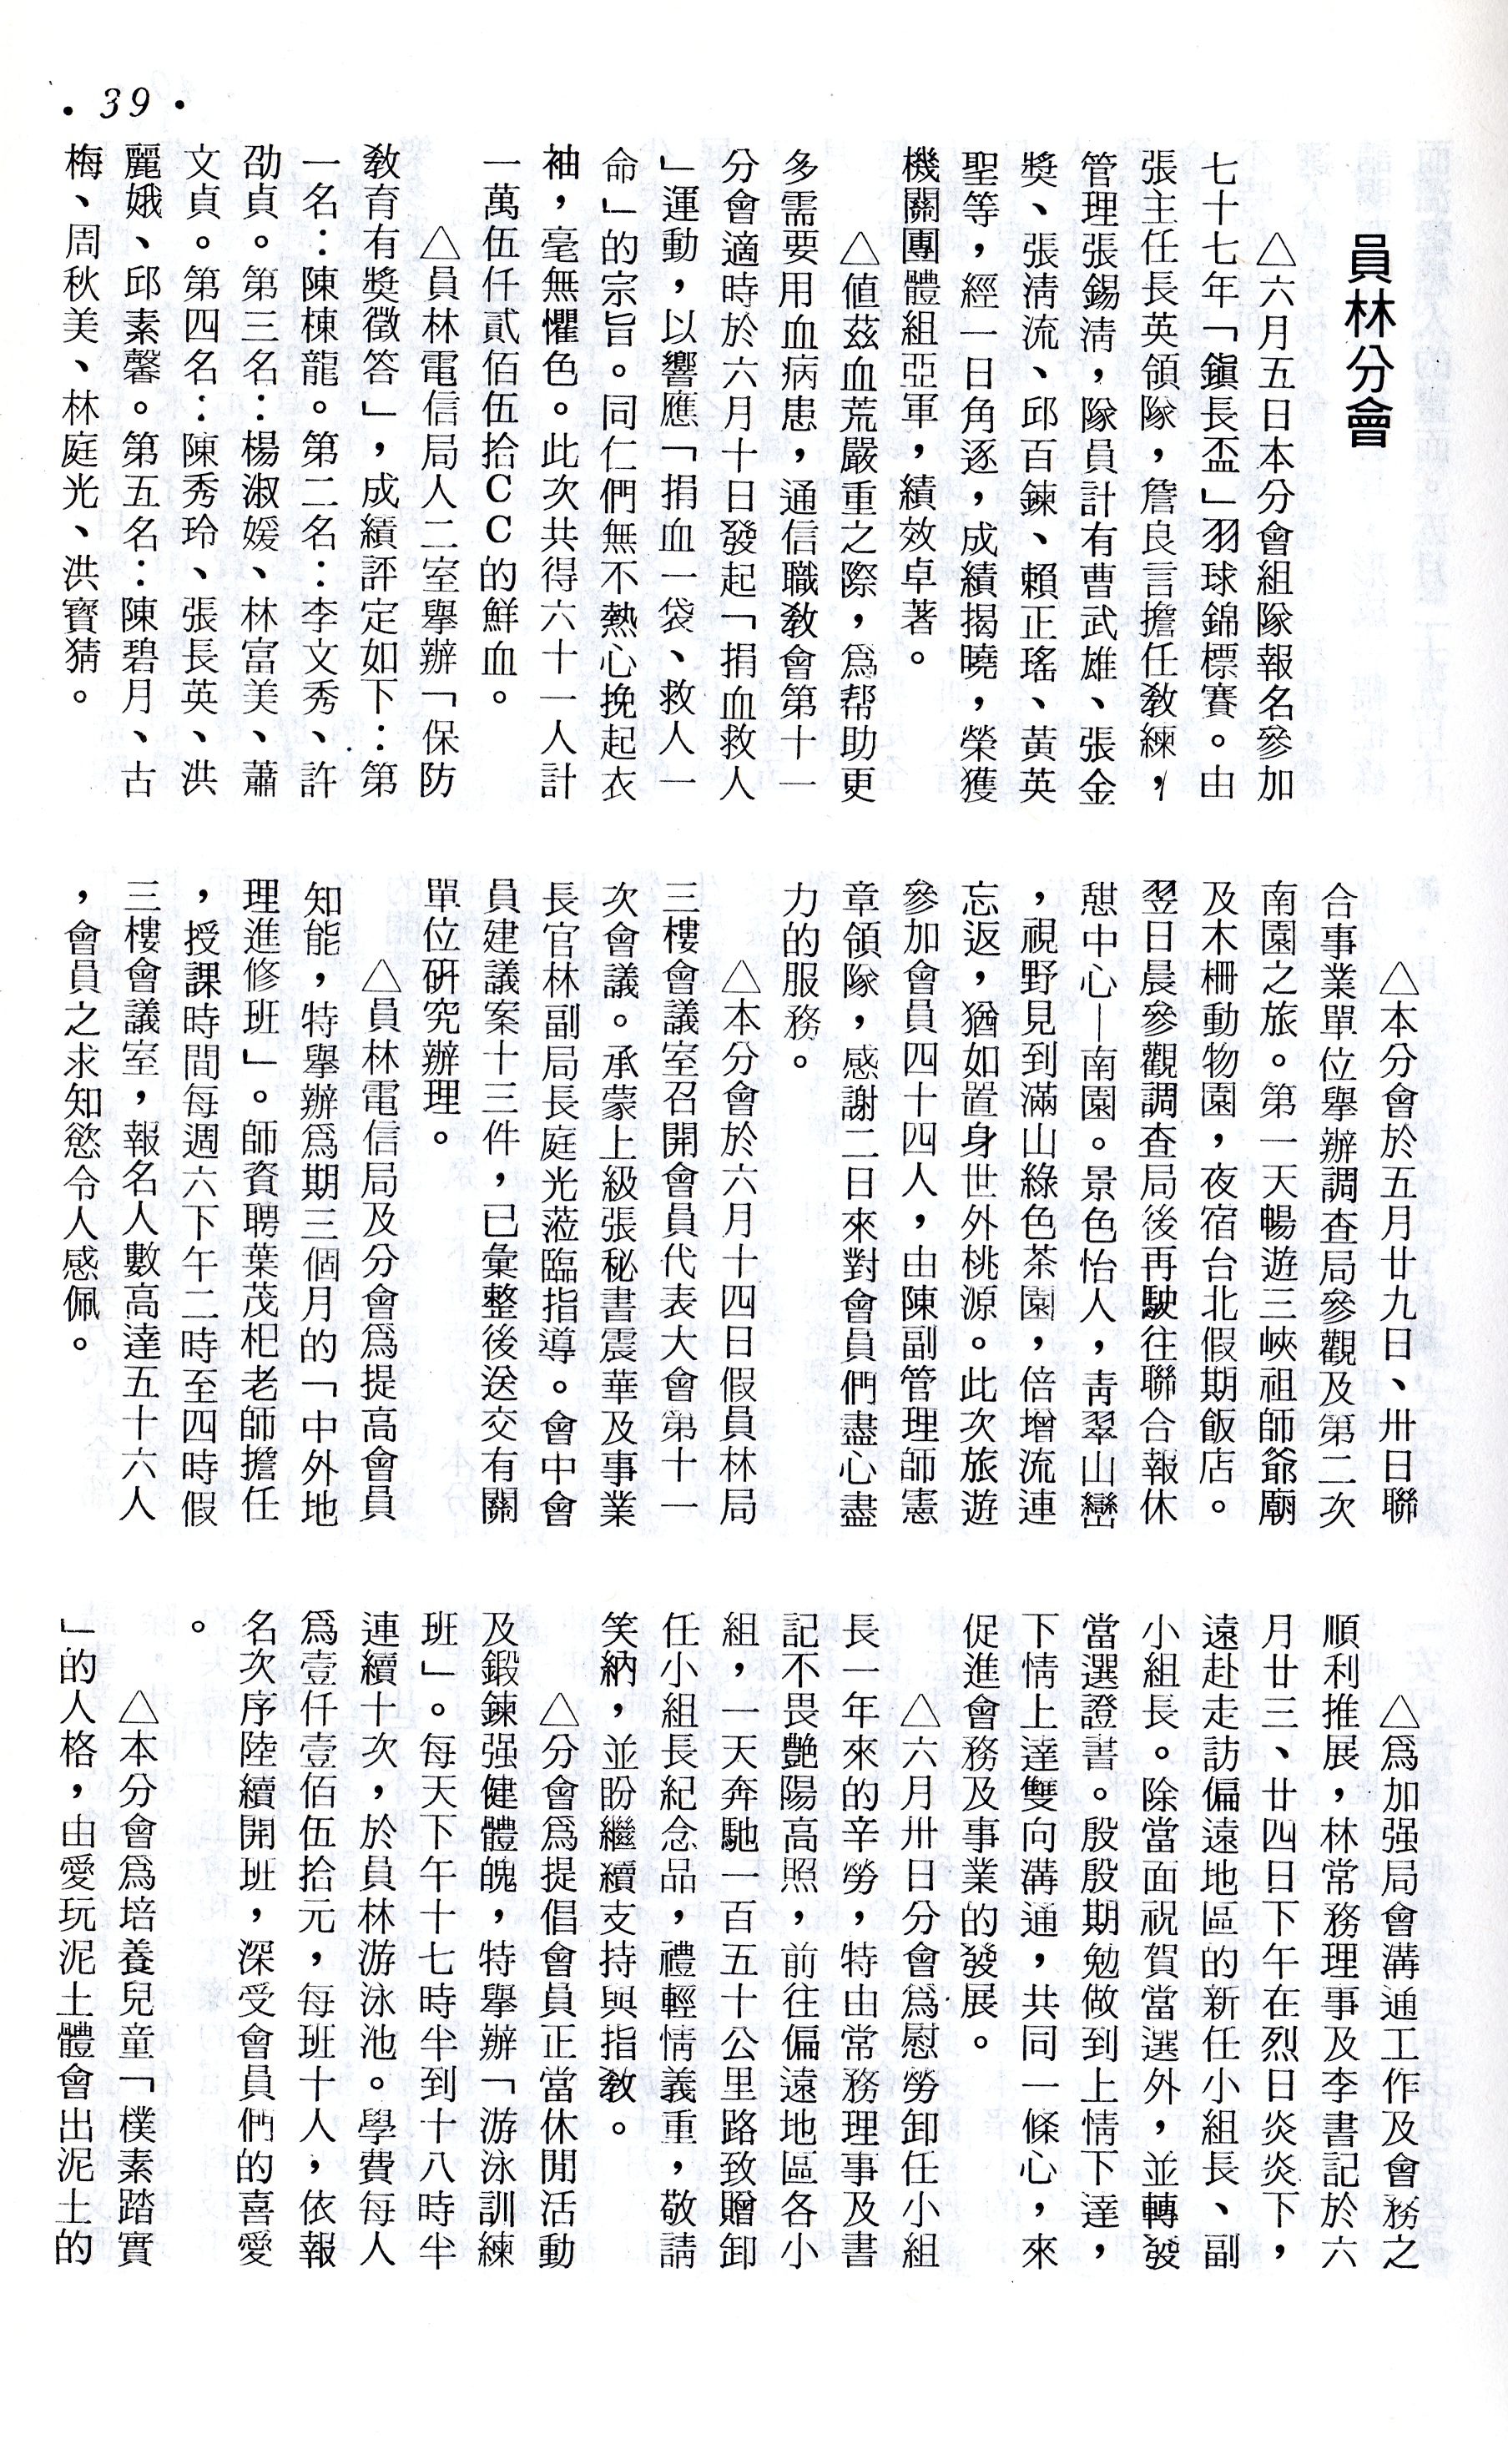 • 39 •
員林分會
△六月五日本分會組隊報名參加
七十七年「鎭長盃」羽球錦標賽。由
張主任長英領隊，詹良言擔任敎練，
管理張錫淸，隊員計有曹武雄、張金
獎、張淸流、邱百鍊、賴正瑤、黃英
聖等，經一日角逐，成績揭曉，榮獲
機關團體組亞軍，績效卓著。
△値茲血荒嚴重之際，爲帮助更
多需要用血病患，通信職敎會第十一
分會適時於六月十日發起「捐血救人
」運動，以響應「捐血一袋、救人一
命」的宗旨。同仁們無不熱心挽起衣
袖，毫無懼色。此次共得六十一人計
一萬伍仟貳佰伍拾ＣＣ的鮮血。
△員林電信局人二室擧辦「保防
敎育有獎徵答」，成績評定如下：第
一名：陳棟龍。第二名：李文秀、許
劭貞。第三名：楊淑媛、林富美、蕭
文貞。第四名：陳秀玲、張長英、洪
麗娥、邱素馨。第五名：陳碧月、古
梅、周秋美、林庭光、洪寶猜。
△本分會於五月廿九日、卅日聯
合事業單位擧辦調査局參觀及第二次
南園之旅。第一天暢遊三峽祖師爺廟
及木柵動物園，夜宿台北假期飯店。
翌日晨參觀調査局後再駛往聯合報休
憩中心—南園。景色怡人，靑翠山巒
，視野見到滿山綠色茶園，倍增流連
忘返，猶如置身世外桃源。此次旅遊
參加會員四十四人，由陳副管理師憲
章領隊，感謝二日來對會員們盡心盡
力的服務。
△本分會於六月十四日假員林局
三樓會議室召開會員代表大會第十一
次會議。承蒙上級張秘書震華及事業
長官林副局長庭光蒞臨指導。會中會
員建議案十三件，已彙整後送交有關
單位硏究辦理。
△員林電信局及分會爲提高會員
知能，特擧辦爲期三個月的「中外地
理進修班」。師資聘葉茂杞老師擔任
，授課時間每週六下午二時至四時假
三樓會議室，報名人數高達五十六人
，會員之求知慾令人感佩。
△爲加强局會溝通工作及會務之
順利推展，林常務理事及李書記於六
月廿三、廿四日下午在烈日炎炎下，
遠赴走訪偏遠地區的新任小組長、副
小組長。除當面祝賀當選外，並轉發
當選證書。殷殷期勉做到上情下達，
下情上達雙向溝通，共同一條心，來
促進會務及事業的發展。
△六月卅日分會爲慰勞卸任小組
長一年來的辛勞，特由常務理事及書
記不畏艶陽高照，前往偏遠地區各小
組，一天奔馳一百五十公里路致贈卸
任小組長紀念品，禮輕情義重，敬請
笑納，並盼繼續支持與指敎。
△分會爲提倡會員正當休閒活動
及鍛鍊强健體魄，特擧辦「游泳訓練
班」。每天下午十七時半到十八時半
連續十次，於員林游泳池。學費每人
爲壹仟壹佰伍拾元，每班十人，依報
名次序陸續開班，深受會員們的喜愛
。
△本分會爲培養兒童「樸素踏實
」的人格，由愛玩泥土體會出泥土的